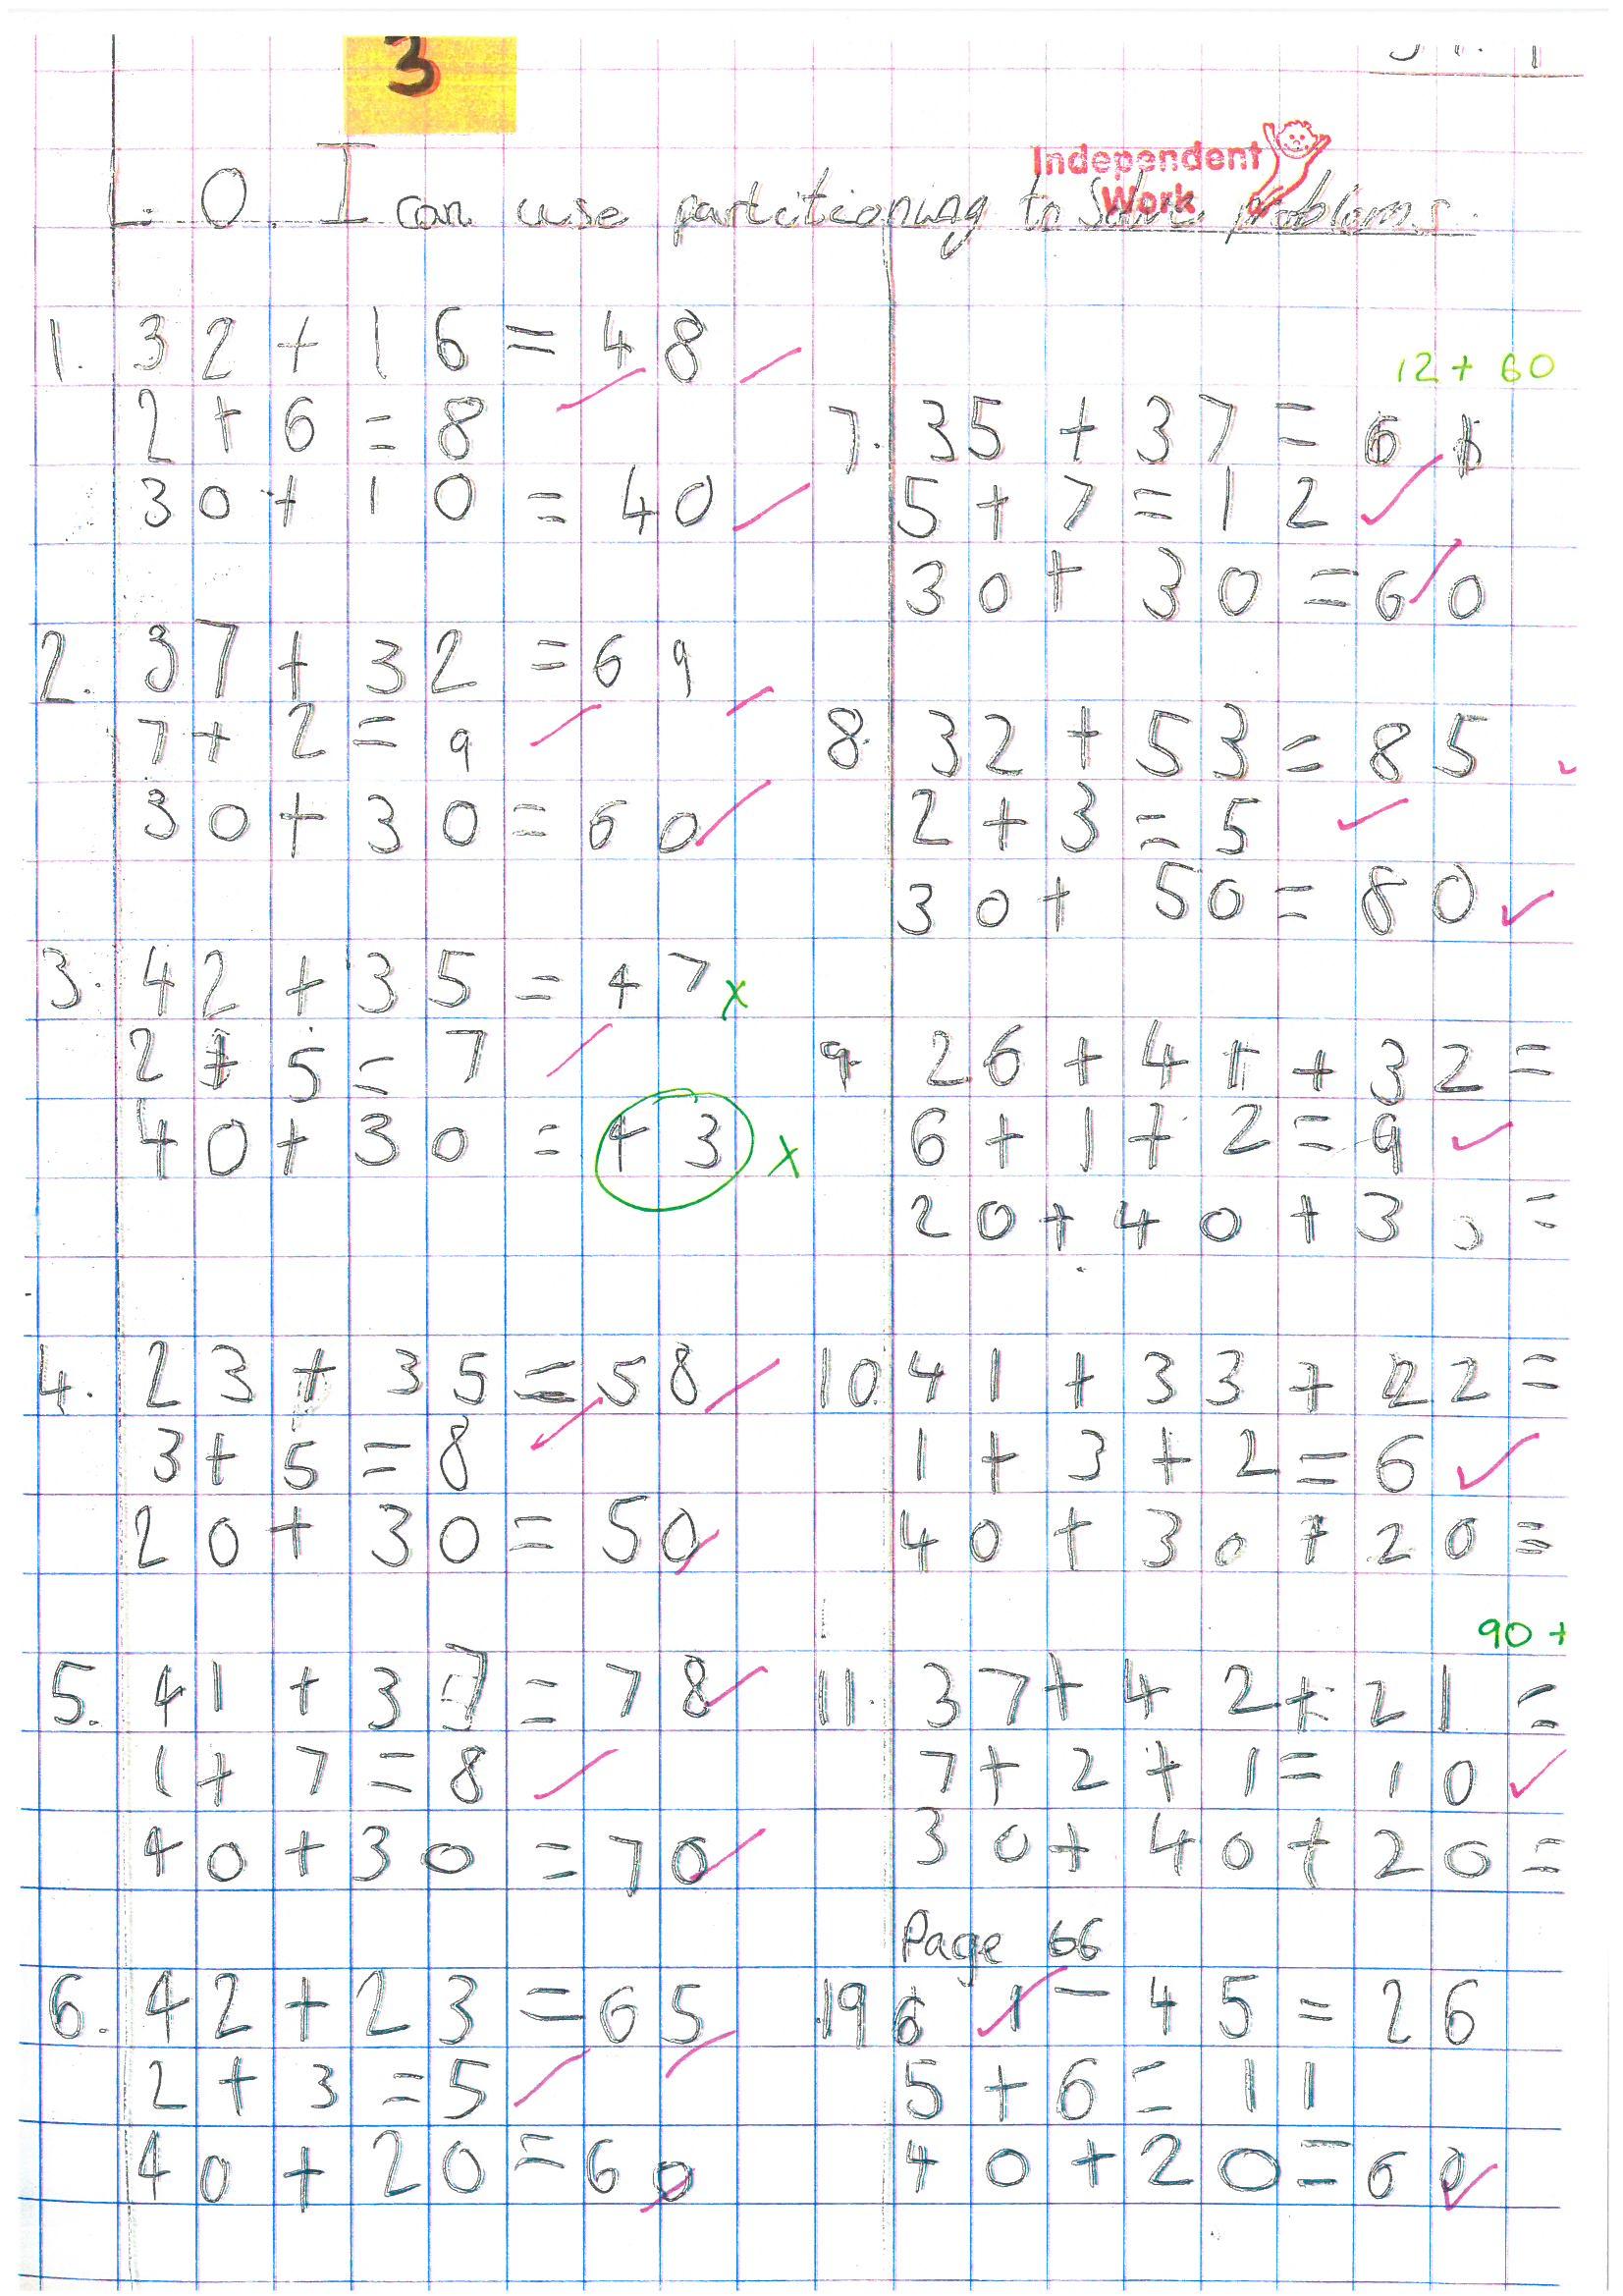 3
Independent
Work
L.O. I can use partitioning to solve problems.
1. 32 + 16 = 48
2 + 6 = 8
30 + 10 = 40
2. 37 + 32 = 69
7 + 2 = 9
30 + 30 = 60
3. 42 + 35 = 47 x
2 + 5 = 7
40 + 30 = 43 x
4. 23 + 35 = 58
3 + 5 = 8
20 + 30 = 50
5. 41 + 37 = 78
1 + 7 = 8
40 + 30 = 70
6. 42 + 23 = 65
2 + 3 = 5
40 + 20 = 60
12 + 60
7. 35 + 37 = 6
5 + 7 = 12
30 + 30 = 60
8. 32 + 53 = 85
2 + 3 = 5
30 + 50 = 80
9 26 + 41 + 32 =
6 + 1 + 2 = 9
20 + 40 + 30 =
10. 41 + 33 + 22 =
1 + 3 + 2 = 6
40 + 30 + 20 =
90 +
11. 37 + 42 + 21 =
7 + 2 + 1 = 10
30 + 40 + 20 =
Page 66
19 6 1 - 45 = 26
5 + 6 = 11
40 + 20 = 60